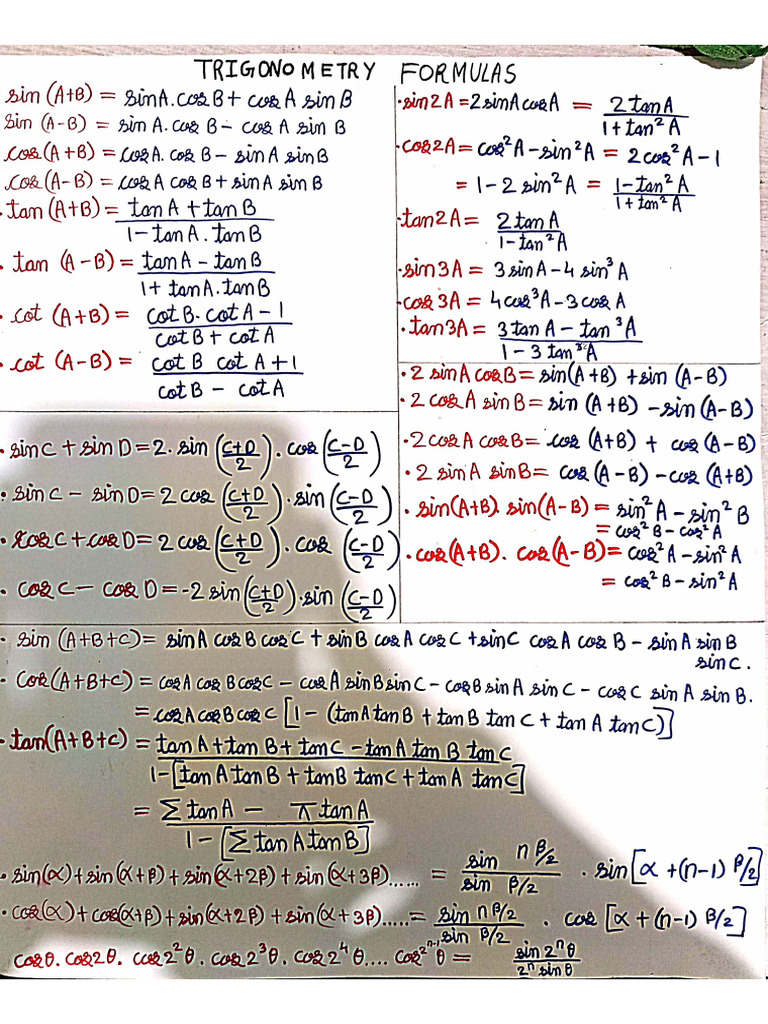 TRIGONOMETRY FORMULAS
sin (A+B) = sinA.cosB + cosA sinB
sin (A-B) = sinA.cosB - cosA sinB
cos(A+B) = cosA.cosB - sinA sinB
cos(A-B) = cosA cosB + sinA sinB
• tan(A+B) = (tanA + tanB)/(1-tanA.tanB)
• tan (A-B) = (tanA - tanB)/(1+tanA.tanB)
• cot (A+B) = (cotB.cotA-1)/(cotB + cotA)
• cot (A-B) = (cotB cotA+1)/(cotB - cotA)
• sin2A = 2sinAcosA = 2tanA/(1+tan²A)
• cos2A = cos²A-sin²A = 2cos²A-1
= 1-2sin²A = (1-tan²A)/(1+tan²A)
• tan2A = 2tanA/(1-tan²A)
• sin3A = 3sinA-4sin³A
• cos3A = 4cos³A-3cosA
• tan3A = (3tanA - tan³A)/(1-3tan³A)
• 2 sinA cosB = sin(A+B) + sin(A-B)
• 2 cosA sinB = sin(A+B) - sin(A-B)
• 2cosA cosB = cos(A+B) + cos(A-B)
• 2 sinA sinB = cos(A-B) - cos(A+B)
• sin(A+B). sin(A-B) = sin²A - sin²B
= cos²B - cos²A
• cos(A+B). cos(A-B) = cos²A - sin²A
= cos²B - sin²A
• sinC + sinD = 2.sin((C+D)/2).cos((C-D)/2)
• sinC - sinD = 2cos((C+D)/2).sin((C-D)/2)
• cosC + cosD = 2cos((C+D)/2).cos((C-D)/2)
• cosC - cosD = -2sin((C+D)/2).sin((C-D)/2)
• sin (A+B+C) = sinA cosB cosC + sinB cosA cosC + sinC cosA cosB - sinA sinB
sinC.
• cos(A+B+C) = cosA cosB cosC - cosA sinB sinC - cosB sinA sinC - cosC sinA sinB.
= cosA cosB cosC [1-(tanA tanB + tanB tanC + tanA tanC)]
• tan(A+B+C) = (tanA + tanB + tanC - tanA tanB tanC)/(1-[tanA tanB + tanB tanC + tanA tanC])
= (Σ tanA - π tanA)/(1-[Σ tanA tanB])
• sin(α) + sin(α+β) + sin(α+2β) + sin(α+3β)...... = (sin nβ/2)/(sin β/2) . sin[α + (n-1) β/2]
• cos(α) + cos(α+β) + sin(α+2β) + sin(α+3β)..... = (sin nβ/2)/(sin β/2) . cos[α + (n-1) β/2]
cosθ.cos2θ.cos2²θ.cos2³θ.cos2⁴θ....cos²ⁿ⁻¹θ = sin2ⁿθ/2ⁿsinθ